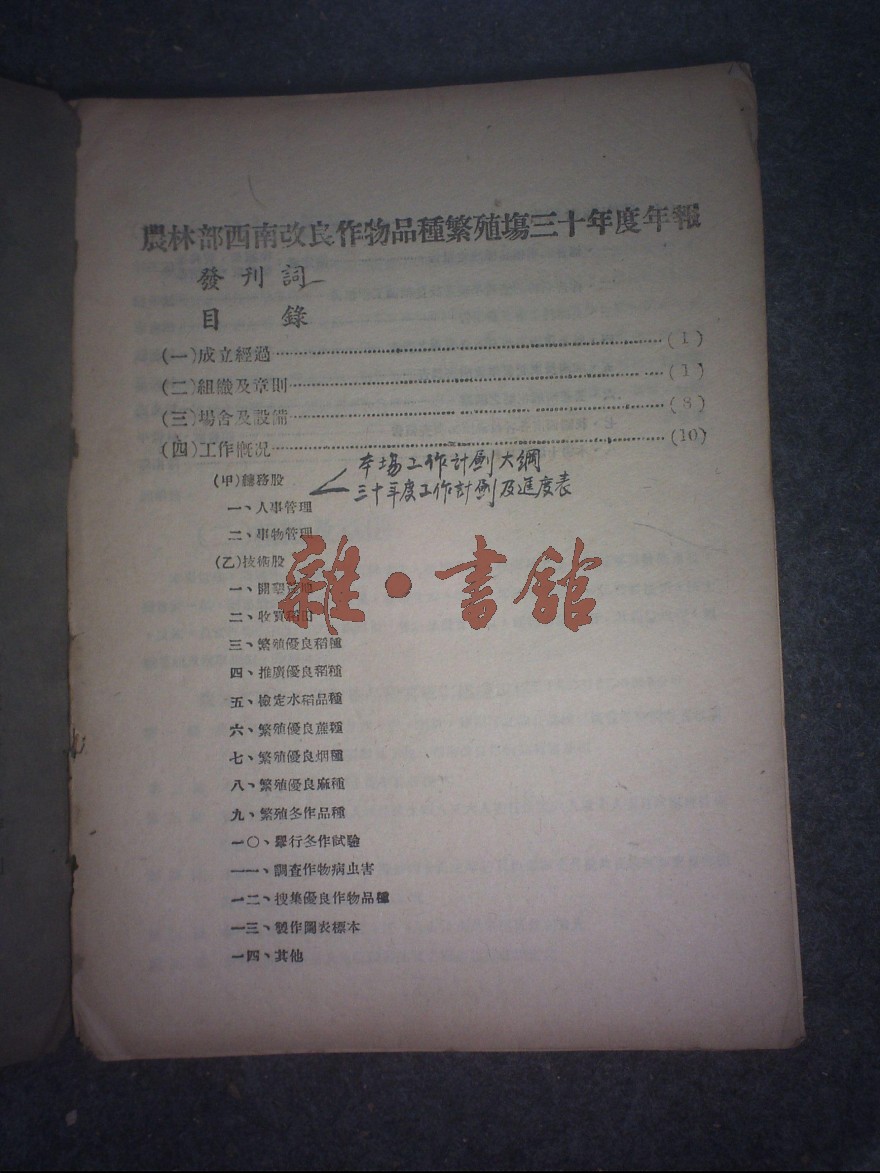 農林部西南改良作物品種繁殖場三十年度年報
發刊詞
目 錄
(一)成立經過………(1)
(二)組織及章則………(1)
(三)場舍及設備………(8)
(四)工作概况………(10)
本場工作計劃大綱
三十年度工作計劃及進度表
(甲)總務股
一、人事管理
二、事物管理
(乙)技術股
一、開墾
二、收買稻田
三、繁殖優良稻種
四、推廣優良稻種
五、檢定水稻品種
六、繁殖優良蔗種
七、繁殖優良烟種
八、繁殖優良麻種
九、繁殖冬作品種
一〇、舉行冬作試驗
一一、調查作物病虫害
一二、搜集優良作物品種
一三、製作圖表標本
一四、其他
雜·書館